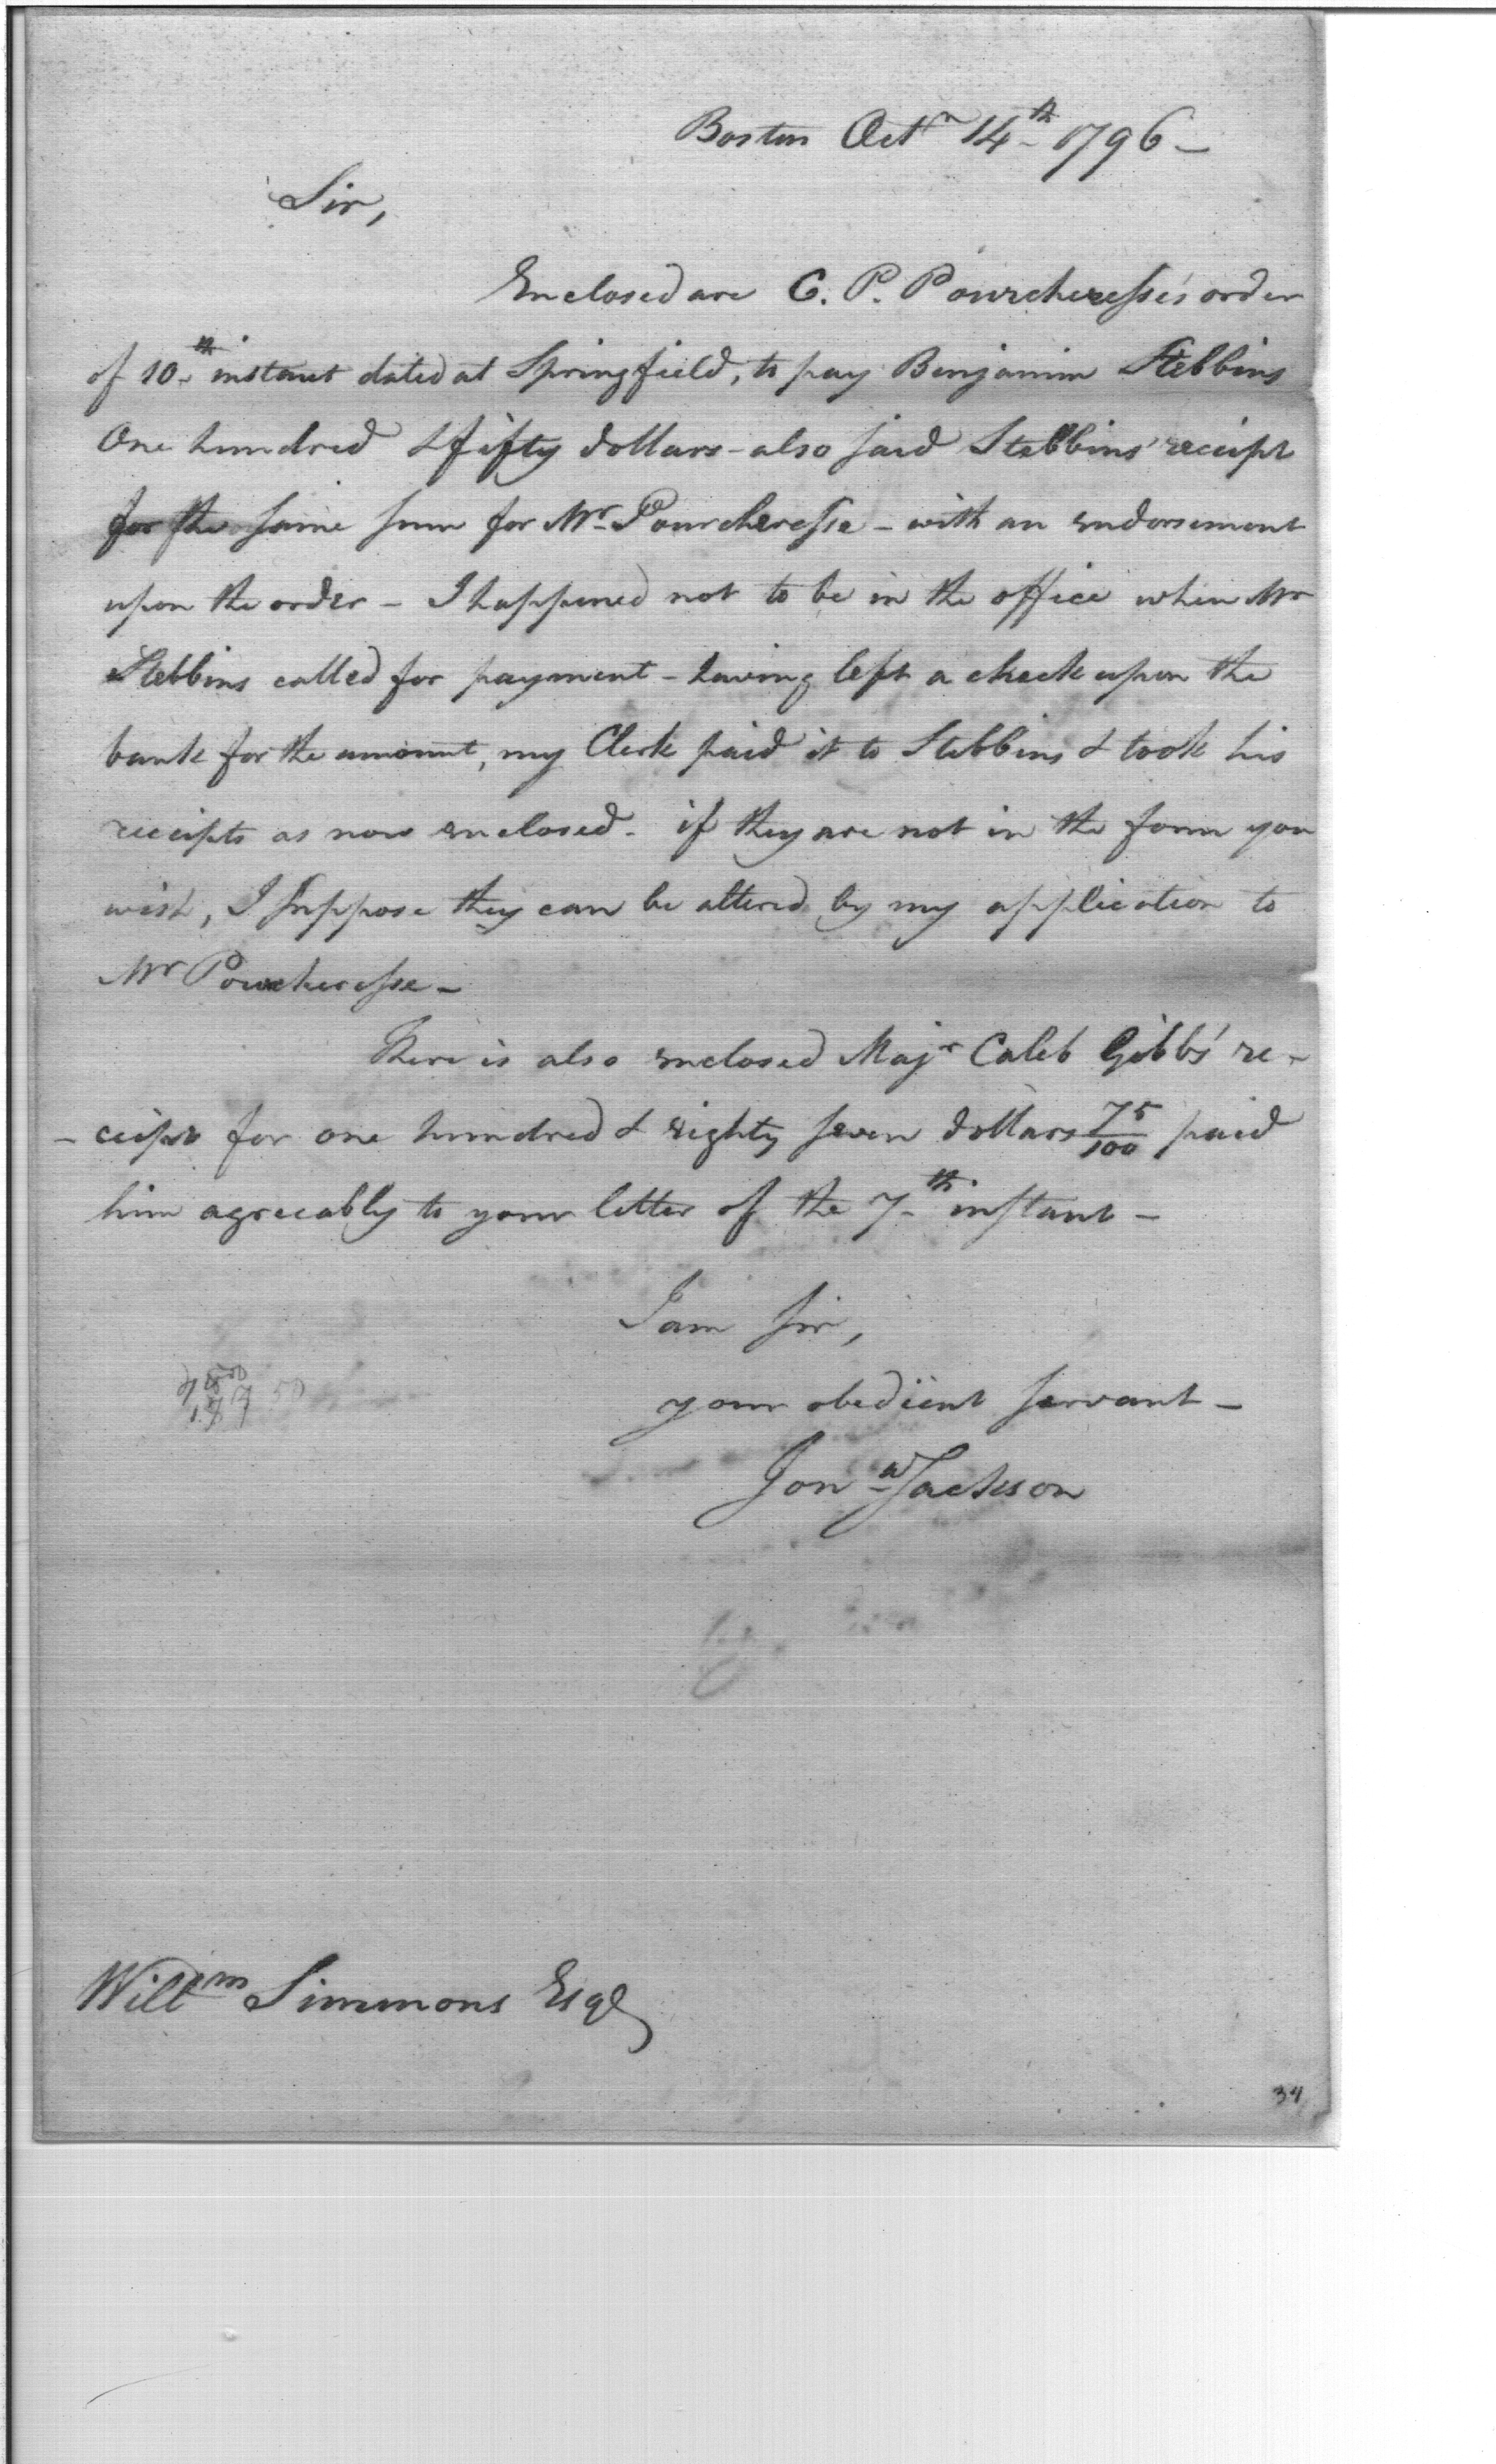 Boston Octr 14th 1796 –
Sir,
Enclosed are C. P. Pourcheresse's order
of 10th instant dated at Springfield, to pay Benjamin Stebbins
One hundred & fifty dollars – also said Stebbins' receipt
for the same sum for Mr Pourcheresse – with an endorsement
upon the order – I happened not to be in the office when Mr
Stebbins called for payment – having left a check upon the
bank for the amount, my Clerk paid it to Stebbins & took his
receipts as now enclosed – if they are not in the form you
wish, I suppose they can be altered by my application to
Mr Pourcheresse –
There is also enclosed Majr Caleb Gibbs' re-
-ceipt for one hundred & eighty seven dollars 75/100 paid
him agreeably to your letter of the 7th instant –
I am Sir,
your obedient servant –
Jona Jackson
Willm Simmons Esqr
34